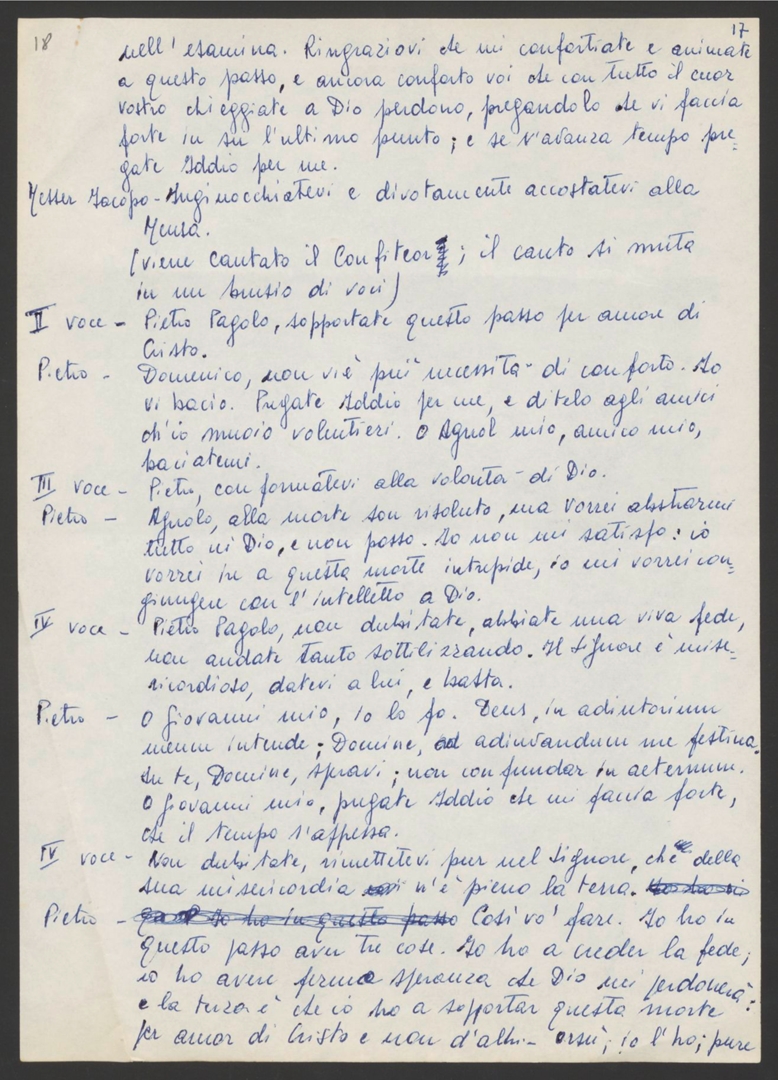 18
17
nell'esamina. Ringraziovi che mi confortiate e animate
a questo passo, e ancora conforto voi che con tutto il cuor
vostro chieggiate a Dio perdono, pregandolo che vi faccia
forte in su l'ultimo punto; e se v'avanza tempo pre=
gate Iddio per me.
Messer Iacopo - Inginocchiatevi e divotamente accostatevi alla
Mensa.
(viene cantato il Confiteor; il canto si muta
in un brusio di voci)
II voce - Pietro Pagolo, sopportate questo passo per amore di
Cristo.
Pietro - Domenico, non vi è più necessità di conforto. Io
vi bacio. Pregate Iddio per me, e ditelo agli amici
ch'io muoio volentieri. O Agnol mio, amico mio,
baciatemi.
III voce - Pietro, conformatevi alla volontà di Dio.
Pietro - Agnolo, alla morte son risoluto, ma vorrei abstrarmi
tutto in Dio, e non posso. Io non mi satisfo: io
vorrei ire a questa morte intrepide, io mi vorrei con=
giungere con l'intelletto a Dio.
IV voce - Pietro Pagolo, non dubitate, abbiate una viva fede,
non andate tanto sottilizzando. Il Signore è mise=
ricordioso, datevi a lui, e basta.
Pietro - O Giovanni mio, io lo fo. Deus, in adiutorium
meum intende; Domine, ad adiuvandum me festina.
In te, Domine, speravi; non confundar in aeternum.
O Giovanni mio, pregate Iddio che mi faccia forte,
che il tempo s'appessa.
IV voce - Non dubitate, rimettetevi pur nel Signore, chè della
sua misericordia n'è pieno la terra.
Pietro - Io ho in questo passo Così vo' fare. Io ho in
questo passo aver tre cose. Io ho a creder la fede;
io ho avere ferma speranza che Dio mi perdonerà:
e la terza è che io ho a sopportar questa morte
per amor di Cristo e non d'altri - orsù, io l'ho; pure